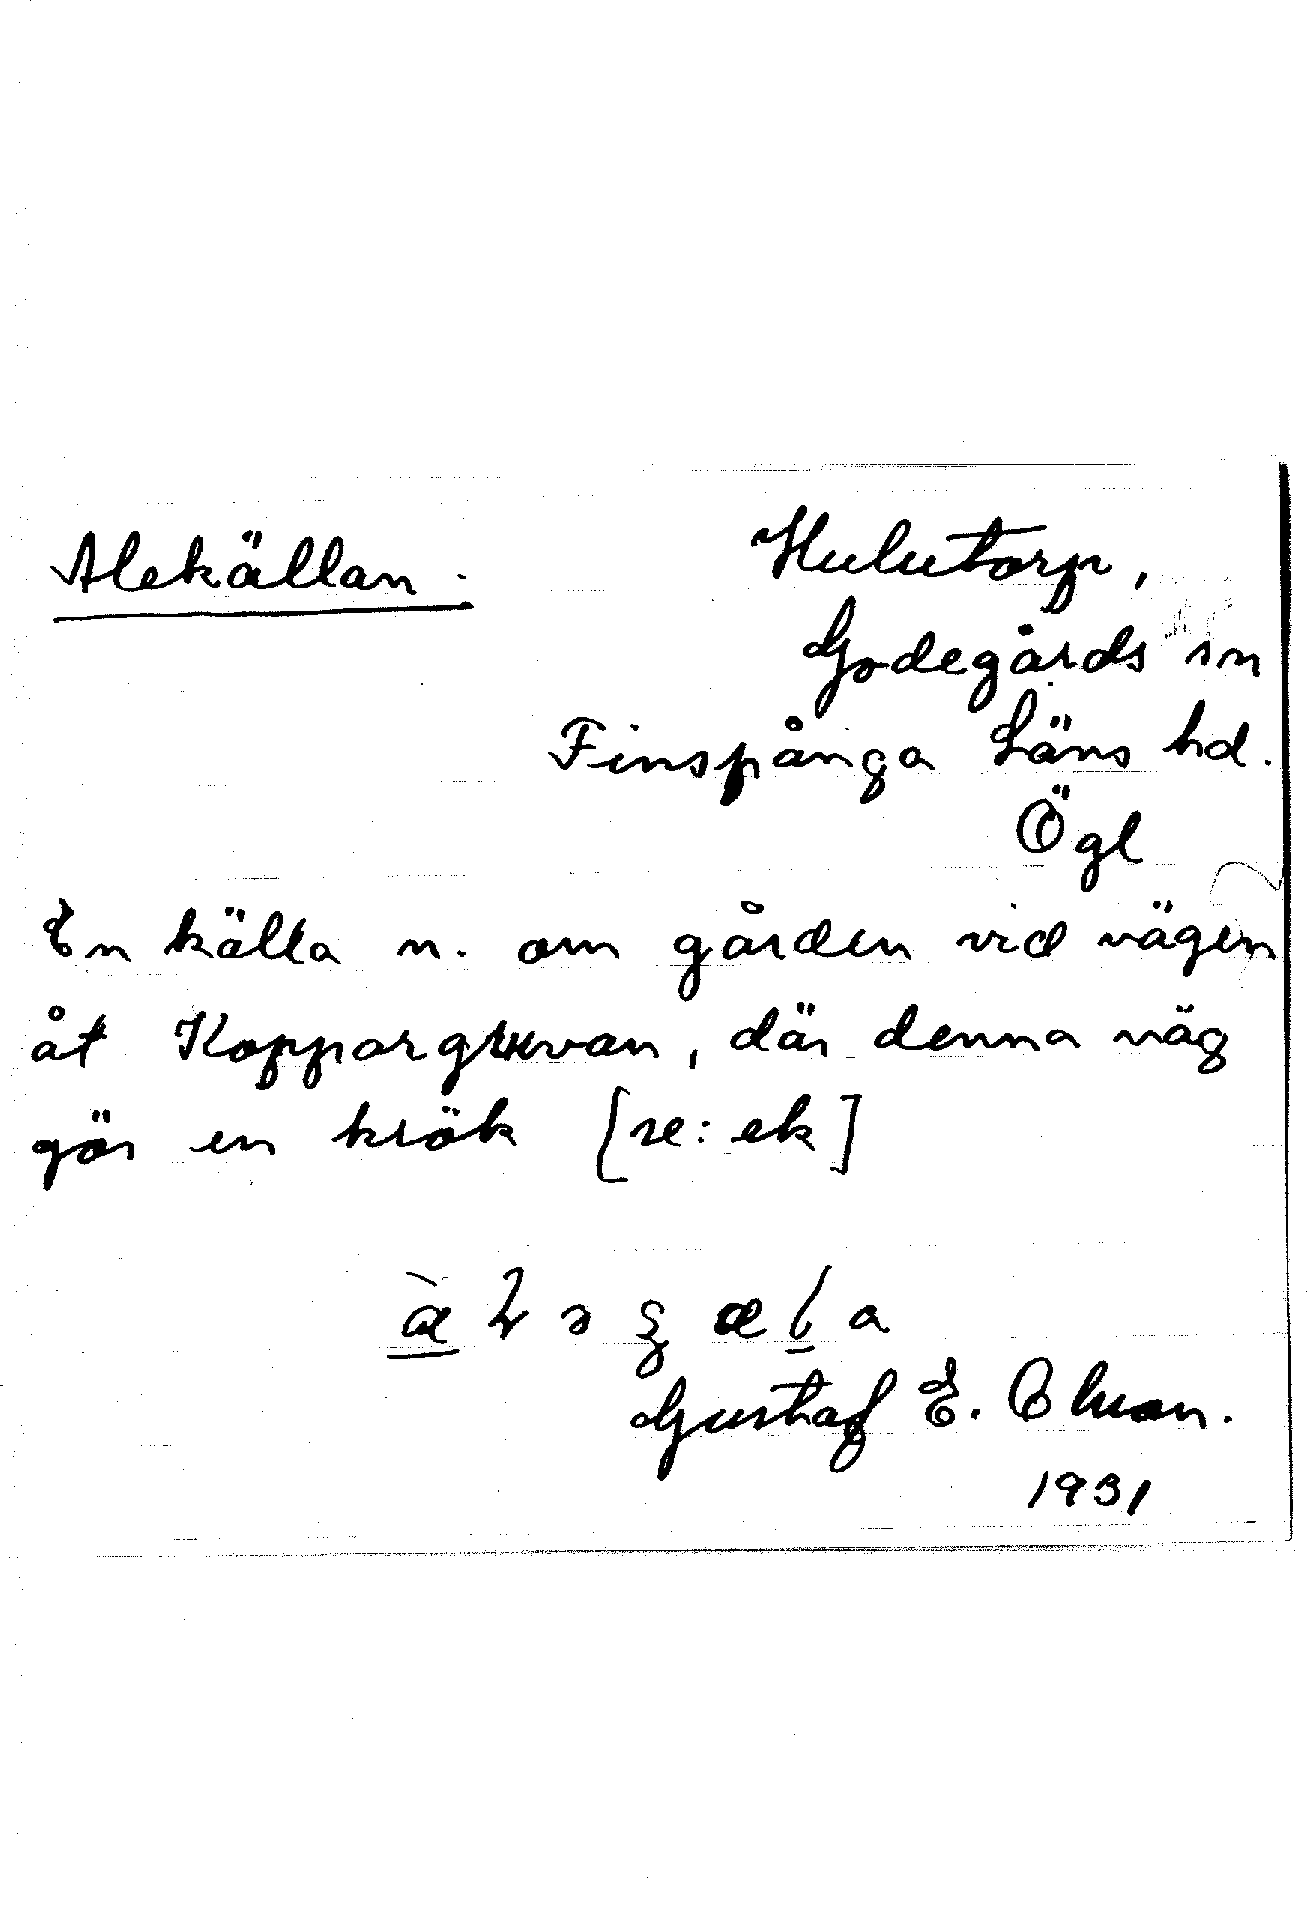 Alekällan.
Hulutorp,
Godegårds sn
Finspånga Läns hd.
Ögl
En källa n. om gården vid vägen
åt Koppargruvan, där denna väg
gör en krök [se: ek]
Gustaf E.
1931